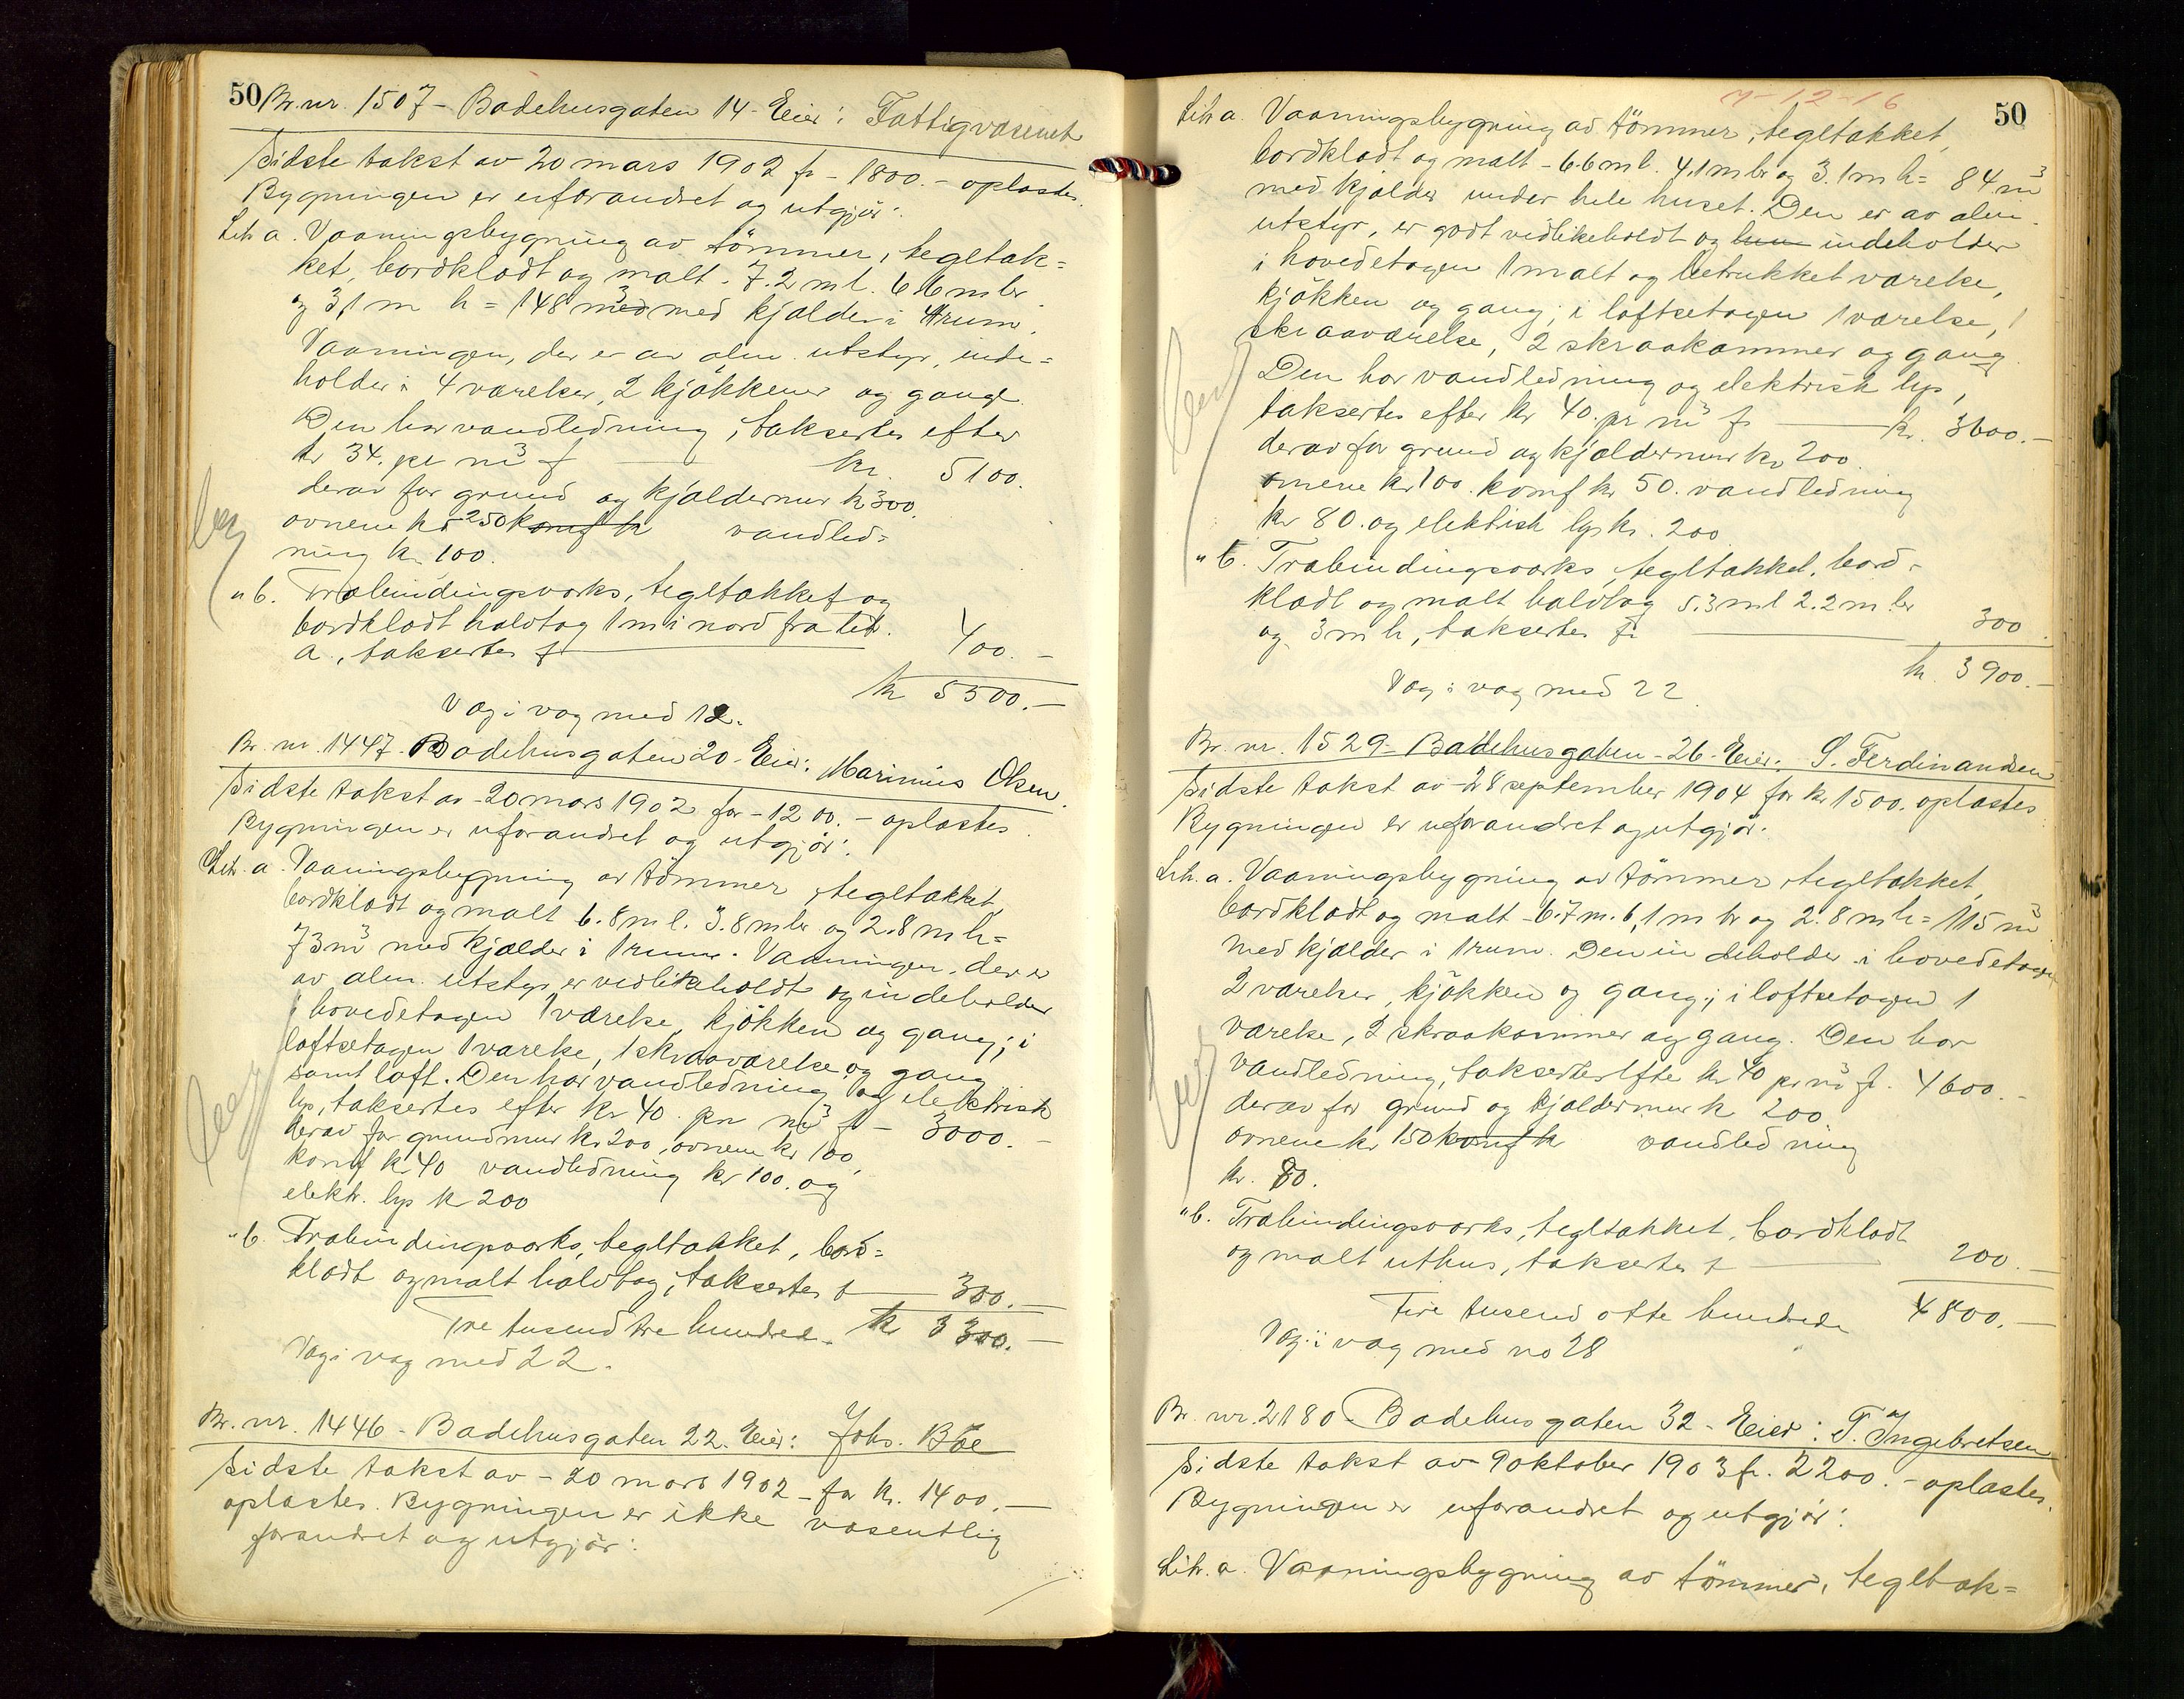 50
Br. nr. 1507 - Badehusgaten 14 - Eier: Fattigvæsenet
Sidste takst av 20 mars 1902 fr - 1800.- oplæstes.
Bygningen er uforandret og utgjör:
Lit. a. Vaaningsbygning av tömmer, tegltæk=
ket, bordklædt og malt - 7.2 m l. 6.6 m br
og 3,1 m h = 148 m3 med kjælder i 4 rum.
Vaaningen, der er av alm. utstyr, inde=
holder i 4 værelser, 2 kjökkener og gange.
Den har vandledning, taksertes efter
kr 34. pr m3 f kr. 5100.
derav for grund og kjældermur kr 300.
ovnene kr 250 komf kr vandled=
ning kr 100.
" b. Træbindingsværks, tegltækket og
bordklædt halvtag 1 m i nord fra lit.
a., taksertes f 400.-
kr 5500.-
Væg i væg med 12.
Br. nr. 1447 - Badehusgaten 20 - Eier: Marinius Olsen.
Sidste takst av - 20 mars 1902 for - 1200.- oplæstes.
Bygningen er uforandret og utgjör:
Lit. a. Vaaningsbygning av tömmer, tegltækket,
bordklædt og malt 6.8 m l. 3.8 m br og 2.8 m h=
73 m3 med kjælder i 1 rum. Vaaningen, der er
av alm. utstyr, er vedlikeholdt og indeholder
i hovedetagen 1 værelse, kjökken og gang; i
loftsetagen 1 værelse, 1 skraaværelse og gang
samt loft. Den har vandledning og elektrisk
lys, taksertes efter kr 40. pr m3 f - 3000.-
derav for grundmur kr 200, ovnene kr 100,
komf kr 40 vandledning kr 100. og
elektr. lys kr 200
" b. Træbindingsværks, tegltækket, bord=
klædt og malt halvtag, taksertes f 300.-
Tre tusend tre hundrede kr 3300.-
Væg i væg med 22.
Br. nr. 1446 - Badehusgaten 22. Eier: Johs. Böe
Sidste takst av - 20 mars 1902 - for kr. 1400.-
oplæstes. Bygningen er ikke væsentlig
forandret og utgjör:
50
7-12-16
Lit. a. Vaaningsbygning av tömmer, tegltækket,
bordklædt og malt - 6.6 m l. 4.1 m br og 3.1 m h = 84 m3
med kjælder under hele huset. Den er av alm.
utstyr, er godt vedlikeholdt og indeholder
i hovedetagen 1 malt og betrukket værelse,
kjökken og gang; i loftsetagen 1 værelse, 1
skraaværelse, 2 skraakammer og gang.
Den har vandledning og elektrisk lys,
taksertes efter kr 40. pr m3 fr kr. 3600.-
derav for grund og kjældermur kr 200.
ovnene kr 100. komf kr 50. vandledning
kr 80. og elektrisk lys kr. 200
" b. Træbindingsværks, tegltækket, bord-
klædt og malt halvtag 5.3 m l 2.2 m br
og 3 m h, taksertes fr 300.
kr. 3900.-
Væg i væg med 22
Br. nr. 1529 - Badehusgaten - 26 - Eier: S. Ferdinandsen
Sidste takst av - 28 september 1904 for kr 1500. oplæstes
Bygningen er uforandret og utgjör:
Lit. a. Vaaningsbygning av tömmer, tegltækket,
bordklædt og malt - 6.7 m. 6,1 m br og 2.8 m h = 115 m3
med kjælder i 1 rum. Den indeholder i hovedetagen
2 værelser, kjökken og gang; i loftsetagen 1
værelse, 2 skraakammer og gang. Den har
vandledning, taksertes efter kr 40 pr m3 f. 4600.-
derav for grund og kjældermur kr 200
ovnene kr 150 komf kr vandledning
kr. 80.
" b. Træbindingsværks, tegltækket, bordklædt
og malt uthus, taksertes f 200.-
Fire tusend otte hundrede 4800.-
Væg i væg med no 28
Br. nr. 2180 - Badehusgaten 32 - Eier: T. Ingebretsen
Sidste takst av 9 oktober 1903 fr. 2200.- oplæstes.
Bygningen er uforandret og utgjör:
Lit. a. Vaaningsbygning av tömmer, tegltæk=